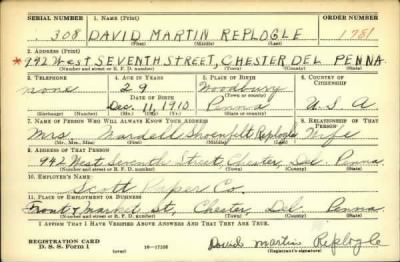 SERIAL NUMBER 1. NAME (Print) ORDER NUMBER
308 DAVID MARTIN REPLOGLE 1781
(First) (Middle) (Last)
2. ADDRESS (Print)
* 942 West SEVENTH STREET, CHESTER DEL PENNA.
(Number and street or R. F. D. number) (Town) (County) (State)
3. TELEPHONE 4. AGE IN YEARS 5. PLACE OF BIRTH 6. COUNTRY OF CITIZENSHIP
none 29 Woodbury
DATE OF BIRTH (Town or county)
Dec. 11, 1910 Penna U.S.A
(Exchange) (Number) (Mo.) (Day) (Yr.) (State or country)
7. NAME OF PERSON WHO WILL ALWAYS KNOW YOUR ADDRESS 8. RELATIONSHIP OF THAT PERSON
Mrs. Mardell Shoenfelt Replogle Wife
(Mr., Mrs., Miss) (First) (Middle) (Last)
9. ADDRESS OF THAT PERSON
942 West Seventh Street, Chester, Del. Penna
(Number and street or R. F. D. number) (Town) (County) (State)
10. EMPLOYER'S NAME
Scott Paper Co.
11. PLACE OF EMPLOYMENT OR BUSINESS
Front & Market St, Chester, Del. Penna
(Number and street or R. F. D. number) (Town) (County) (State)
I AFFIRM THAT I HAVE VERIFIED ABOVE ANSWERS AND THAT THEY ARE TRUE.
REGISTRATION CARD
D. S. S. Form 1 (over) 16—17105 David Martin Replogle
(Registrant's signature)